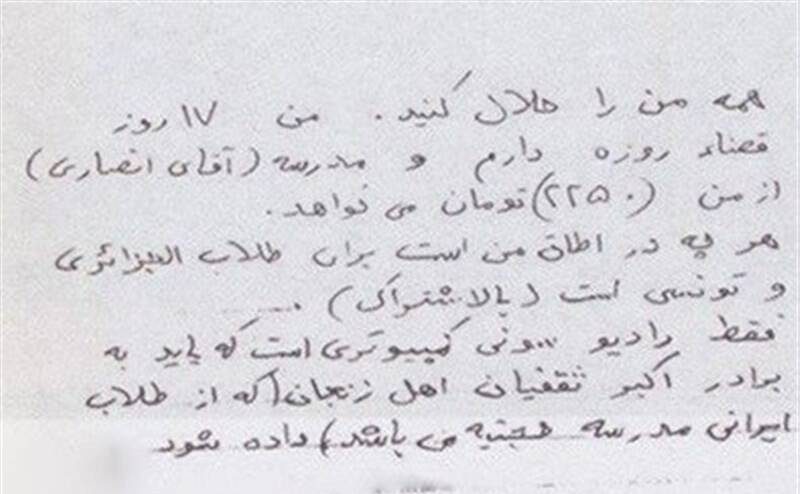 همه من را حلال کنید. من ۱۷ روز
قضاء روزه دارم و مدرسه (آقای انصاری)
از من (۲۲۵۰) تومان می خواهد.
هر چه در اطاق من است برای طلاب الجزائری
و تونسی است (بالاشتراک).
فقط رادیو سونی کمپیوتری است که باید به
برادر اکبر ثقفیان اهل زنجان (که از طلاب
ایرانی مدرسه حجتیه می باشد) داده شود